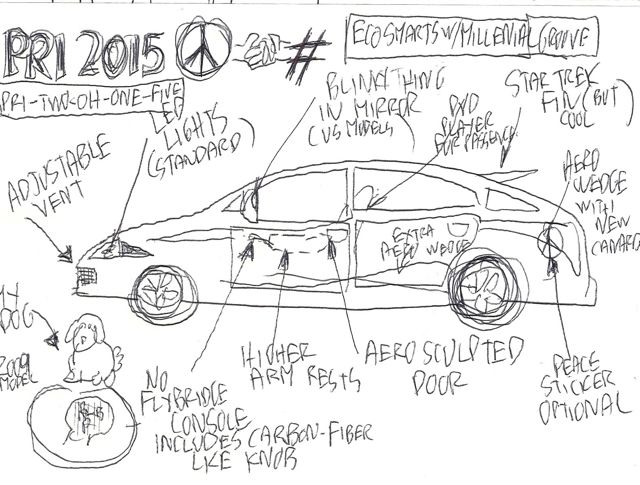 PRI 2015 #
ECO SMARTS W/MILLENIAL GROOVE
PRI-TWO-OH-ONE-FIVE
LED
LIGHTS
(STANDARD)
BLINKY THING
IN MIRROR
(US MODELS)
DVD
PLAYER
FOR PASSENGE
STAR TREK
FIN (BUT
COOL)
ADJUSTABLE
VENT
AERO
WEDGE
WITH
NEW
CAMARO
EXTRA
AERO WEDGE
MY
DOG
2009
MODEL
NO
FLYBRIDGE
CONSOLE
INCLUDES CARBON-FIBER
LIKE KNOB
HIGHER
ARM RESTS
AERO SCULPTED
DOOR
PEACE
STICKER
OPTIONAL